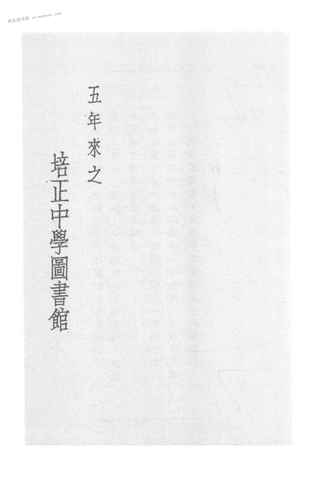 五年來之
培正中學圖書館